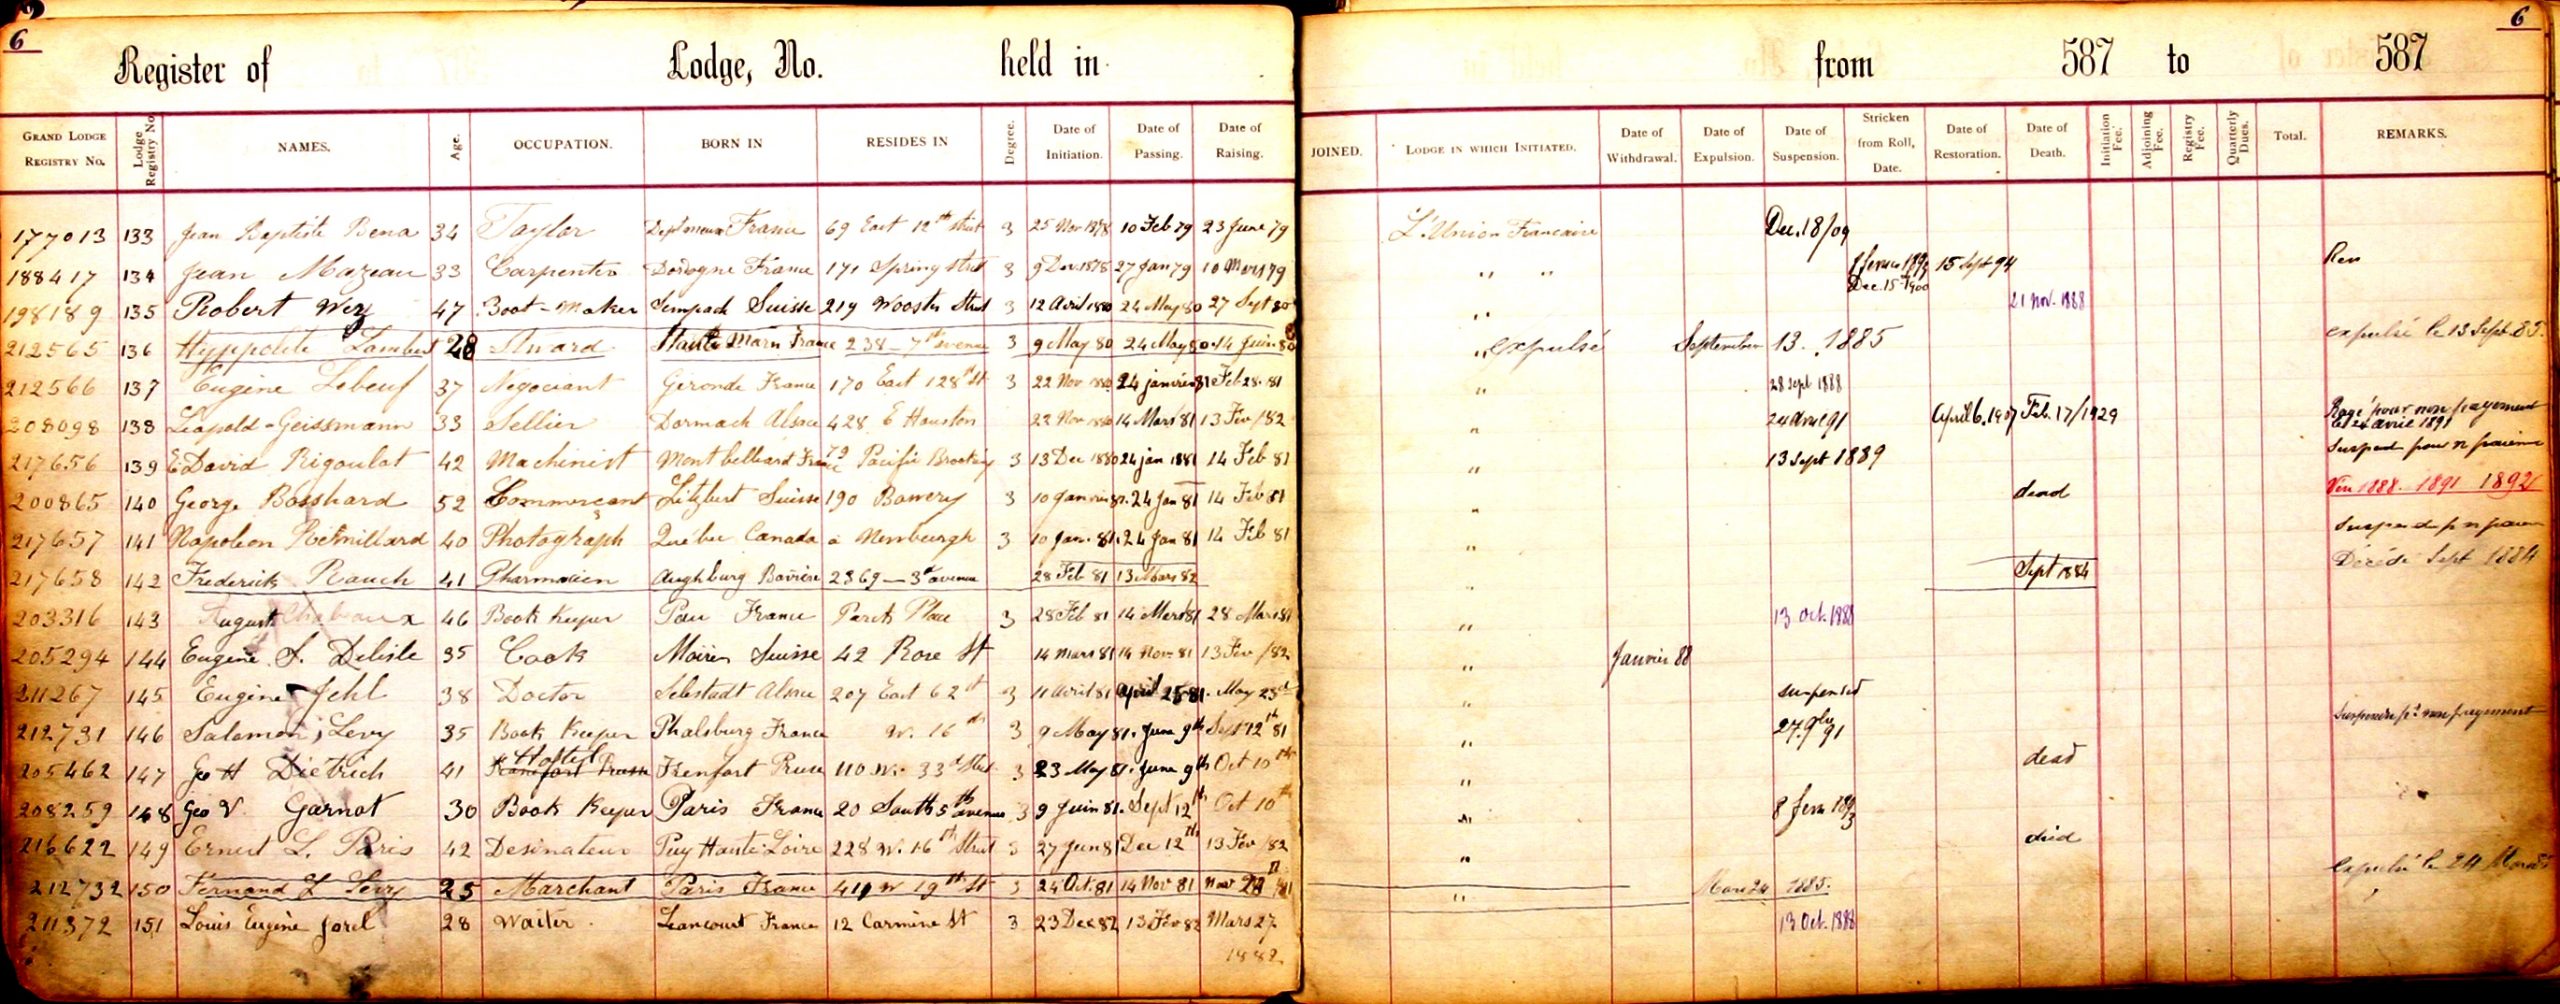 6 6
Register of Lodge, No. held in from 587 to 587
GRAND LODGE REGISTRY NO. Lodge Registry No. NAMES. Age. OCCUPATION. BORN IN RESIDES IN Degree. Date of Initiation. Date of Passing. Date of Raising. JOINED. LODGE IN WHICH INITIATED. Date of Withdrawal. Date of Expulsion. Date of Suspension. Stricken from Roll, Date. Date of Restoration. Date of Death. Initiation Fee. Adjoining Fee. Registry Fee. Quarterly Dues. Total. REMARKS.
177013 133 Jean Baptiste Bena 34 Taylor France 69 East 12th Street 3 25 Nov 1878 10 Feb 79 23 June 79 L'Union Francaise Dec. 18/09
188417 134 Jean Mazeau 33 Carpenter Dordogne France 171 Spring Street 3 9 Dec 1878 27 Jan 79 10 Mars 79 " " Dec. 15-1900 15 Sept 94
198189 135 Robert Wez 47 Boot-Maker Sempach Suisse 219 Wooster Street 3 12 Avril 1880 24 May 80 27 Sept 80 " 21 Nov. 1888
212565 136 Hyppolite Lambert 28 Stward Haute Marn France 238-7th avenue 3 9 May 80 24 May 80 14 Juin 80 " expulsé September 13. 1885 expulsé le 13 Sept. 85.
212566 137 Eugène Lebeuf 37 Negociant Gironde France 170 East 128th St 3 22 Nov 1880 24 janvier 81 Feb 28. 81 " 28 sept 1888
208098 138 Leopold-Geissmann 33 Sellier Dornach Alsace 428 E Houston 22 Nov 1880 14 Mars 81 13 Fev /82 " 24 avril 91 April 6. 1907 Feb. 17/1929 Rayé pour non payement le 24 avril 1891
217656 139 E David Rigoulot 42 Machinist Montbelliard France 79 Pacific Brooklyn 3 13 Dec 1880 24 jan 1881 14 Feb 81 " 13 Sept 1889
200865 140 George Bosshard 52 Commerçant Suisse 190 Bowery 3 24 Jan 81 14 Feb 81 " dead 1888. 1891 1892
217657 141 Napoleon Rémillard 40 Photograph Québec Canada a Newburgh 3 10 Jan. 81. 24 Jan 81 14 Feb 81 "
217658 142 Frederick Rauch 41 Pharmacien Aughburg Bavière 2369-3d avenue 28 Feb 81 13 Mars 82 " Sept 1884 Décédé Sept 1884
203316 143 August Chabaux 46 Book Keeper Pau France Parck Place 3 28 Feb 81 14 Mars 81 28 Mars 81 " 13 Oct. 1888
205294 144 Eugène S. Delisle 35 Cook Suisse 42 Rose St 14 Mars 81 14 Nov. 81 13 Fev /82 " Janvier 88
211267 145 Eugène Jehl 38 Doctor Selestadt Alsace 207 East 62st 3 11 Avril 81 April 25 81. May 23d " suspended
212731 146 Salomon Levy 35 Book Keeper Phalsburg France W. 16th 3 9 May 81. June 9th Sept 12th 81 " 27. 9bre 91
205462 147 Geo H Dietrich 41 Hostel Frenfort Pruse 110 W. 33d Street 3 23 May 81. June 9th Oct 10th " dead
208259 148 Geo V Garnot 30 Book Keeper Paris France 20 South 5th avenue 3 9 Juin 81. Sept 12th Oct 10th " 8 1893
216622 149 Ernest L. Paris 42 Desinateur Puy Haute-Loire 228 W. 16th Street 3 27 Jun 81 Dec 12th 13 Fev /82 " died
212732 150 Fernand L Levy 25 Marchant Paris France 419 W 19th St 3 24 Oct. 81 14 Nov 81 Nov 28 /81 " Mars 24 1885. expulsé le 24 Mars 85
211372 151 Louis Eugène Jorel 28 Waiter Liancourt France 12 Carmine St 3 23 Dec 82 13 Fev 82 Mars 27 1882 13 Oct. 1888